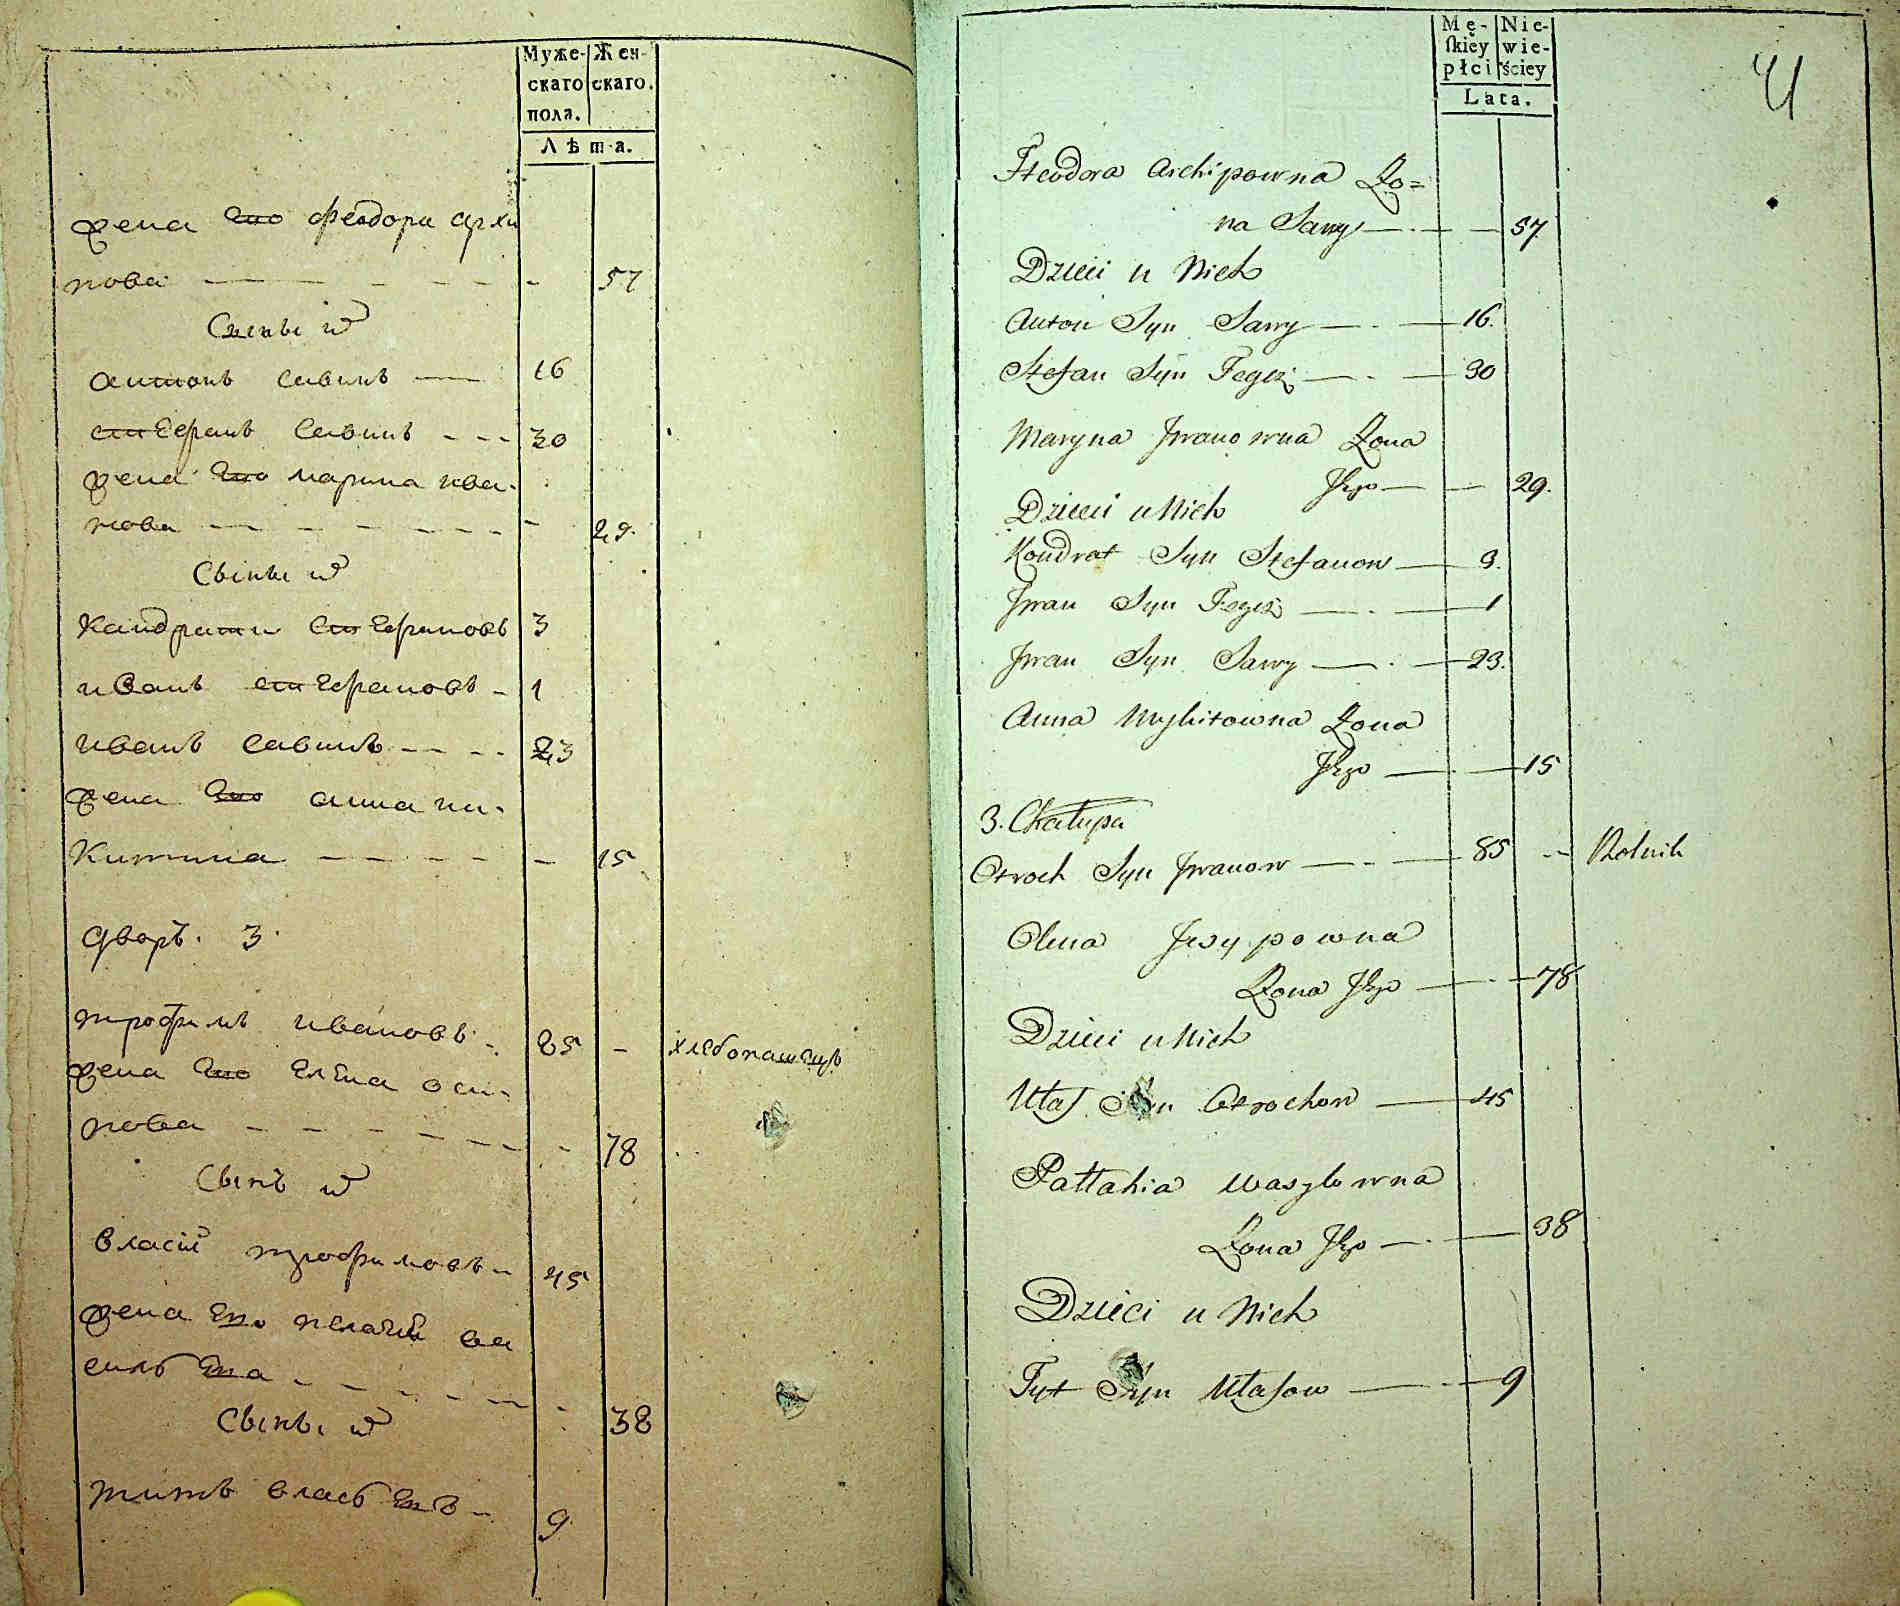 Муже- Жен-
скаго скаго.
пола.
Лѣта.
жена его феодора архи
пова — 57
Сыны ихъ
антонъ савинъ — 16
стефанъ савинъ - - - 30
жена его марина ива-
нова — 29.
Сыны ихъ
кандратъ стефановъ 3
иванъ стефановъ - 1
иванъ савинъ - - - 23
жена его анна ни-
китина — 15
дворъ. 3.
трофимъ ивановъ - 85 - хлебопашецъ
жена его елена оси-
пова - - - 78
Сынъ ихъ
власій трофимовъ - 45
жена его пелагия ва
сильева - - - 38
Сыны ихъ
титъ власьевъ - 9
Mę- Nie-
skiey wie-
płci ściey
Lata.
4
Fteodora Archipowna Zo=
na Sawy — 57
Dzieci u Nich
Anton Syn Sawy — 16.
Stefan Syn Tegoż — 30
Maryna Jwanowna Zona
Jego — 29.
Dzieci u Nich
Kondrat Syn Stefanow — 3.
Jwan Syn Tegoż — 1
Jwan Syn Sawy — 23.
Anna Mykitowna Zona
Jego — 15
3. Chałupa
Otroch Syn Jwanow — 85 -- Rolnik
Olena Jesypowna
Zona Jego — 78
Dzieci u Nich
Ułas Syn Otrochow — 45
Pałłahia Wasylowna
Zona Jego — 38
Dzieci u Nich
Tyt Syn Ułasow — 9